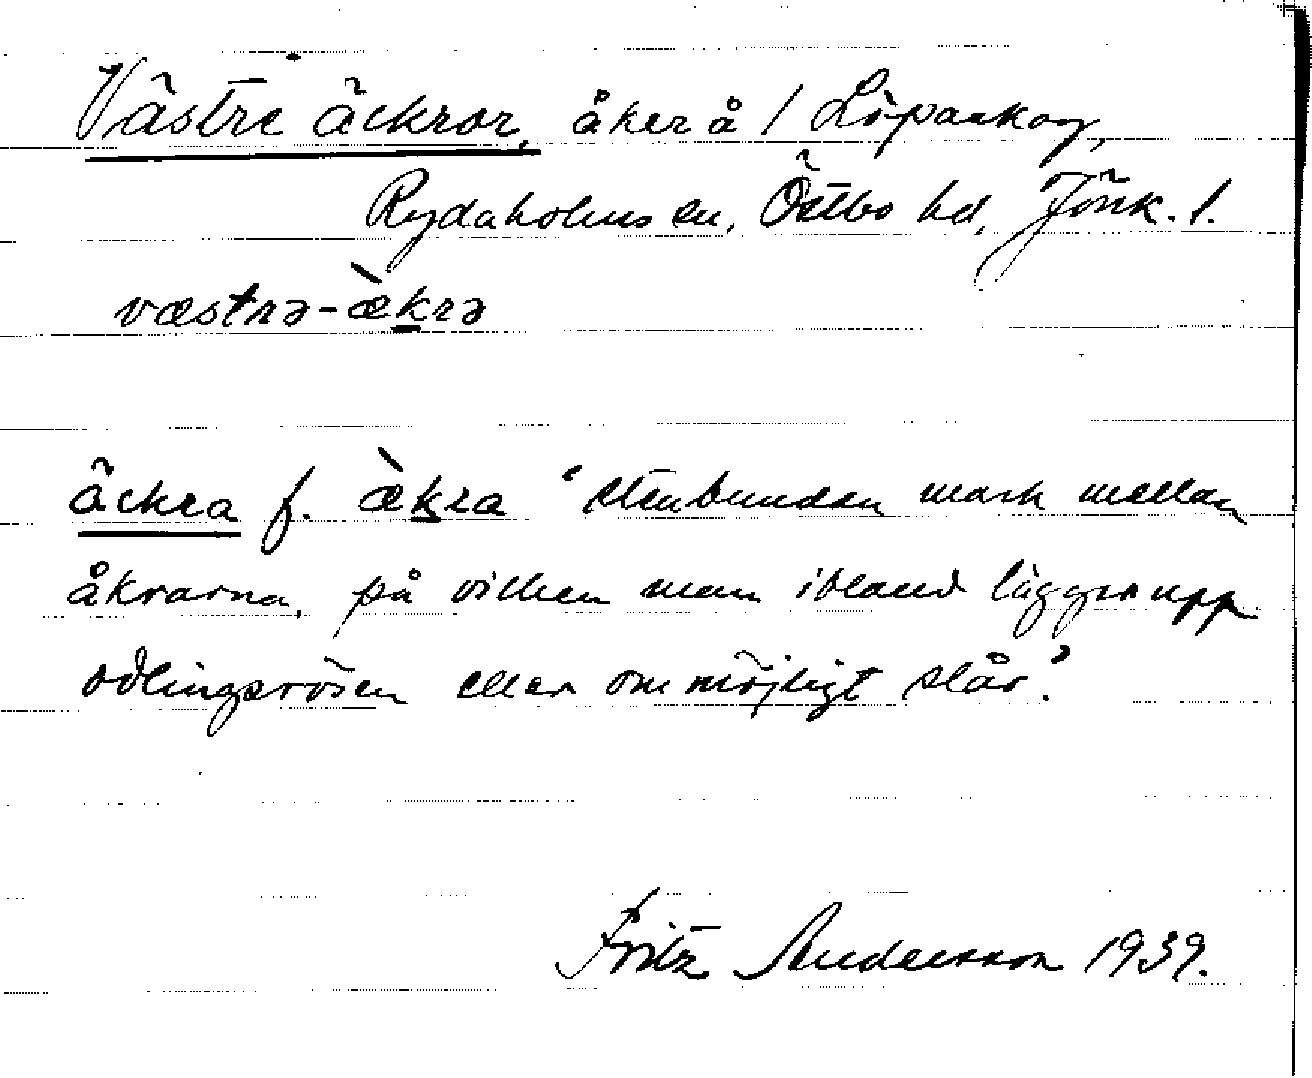 Västre äckror, åker å / Löpaskog,
Rydaholms sn, Östbo hd, Jönk. l.
væstrə-æ̀krə
äckra f. æ̀kra ‘stenbunden mark mellan
åkrarna, på vilken man ibland lägger upp
odlingsrösen eller om möjligt slår.’
Fritz Andersson 1939.